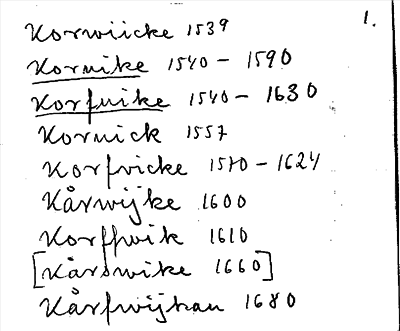 Korwiicke 1539 1.
Kornike 1540 - 1590
Korfuike 1540 - 1630
Kornick 1557
Korfvicke 1570 - 1624
Kårwijke 1600
Korffwik 1610
[Kårswike 1660]
Kårfwijkan 1680